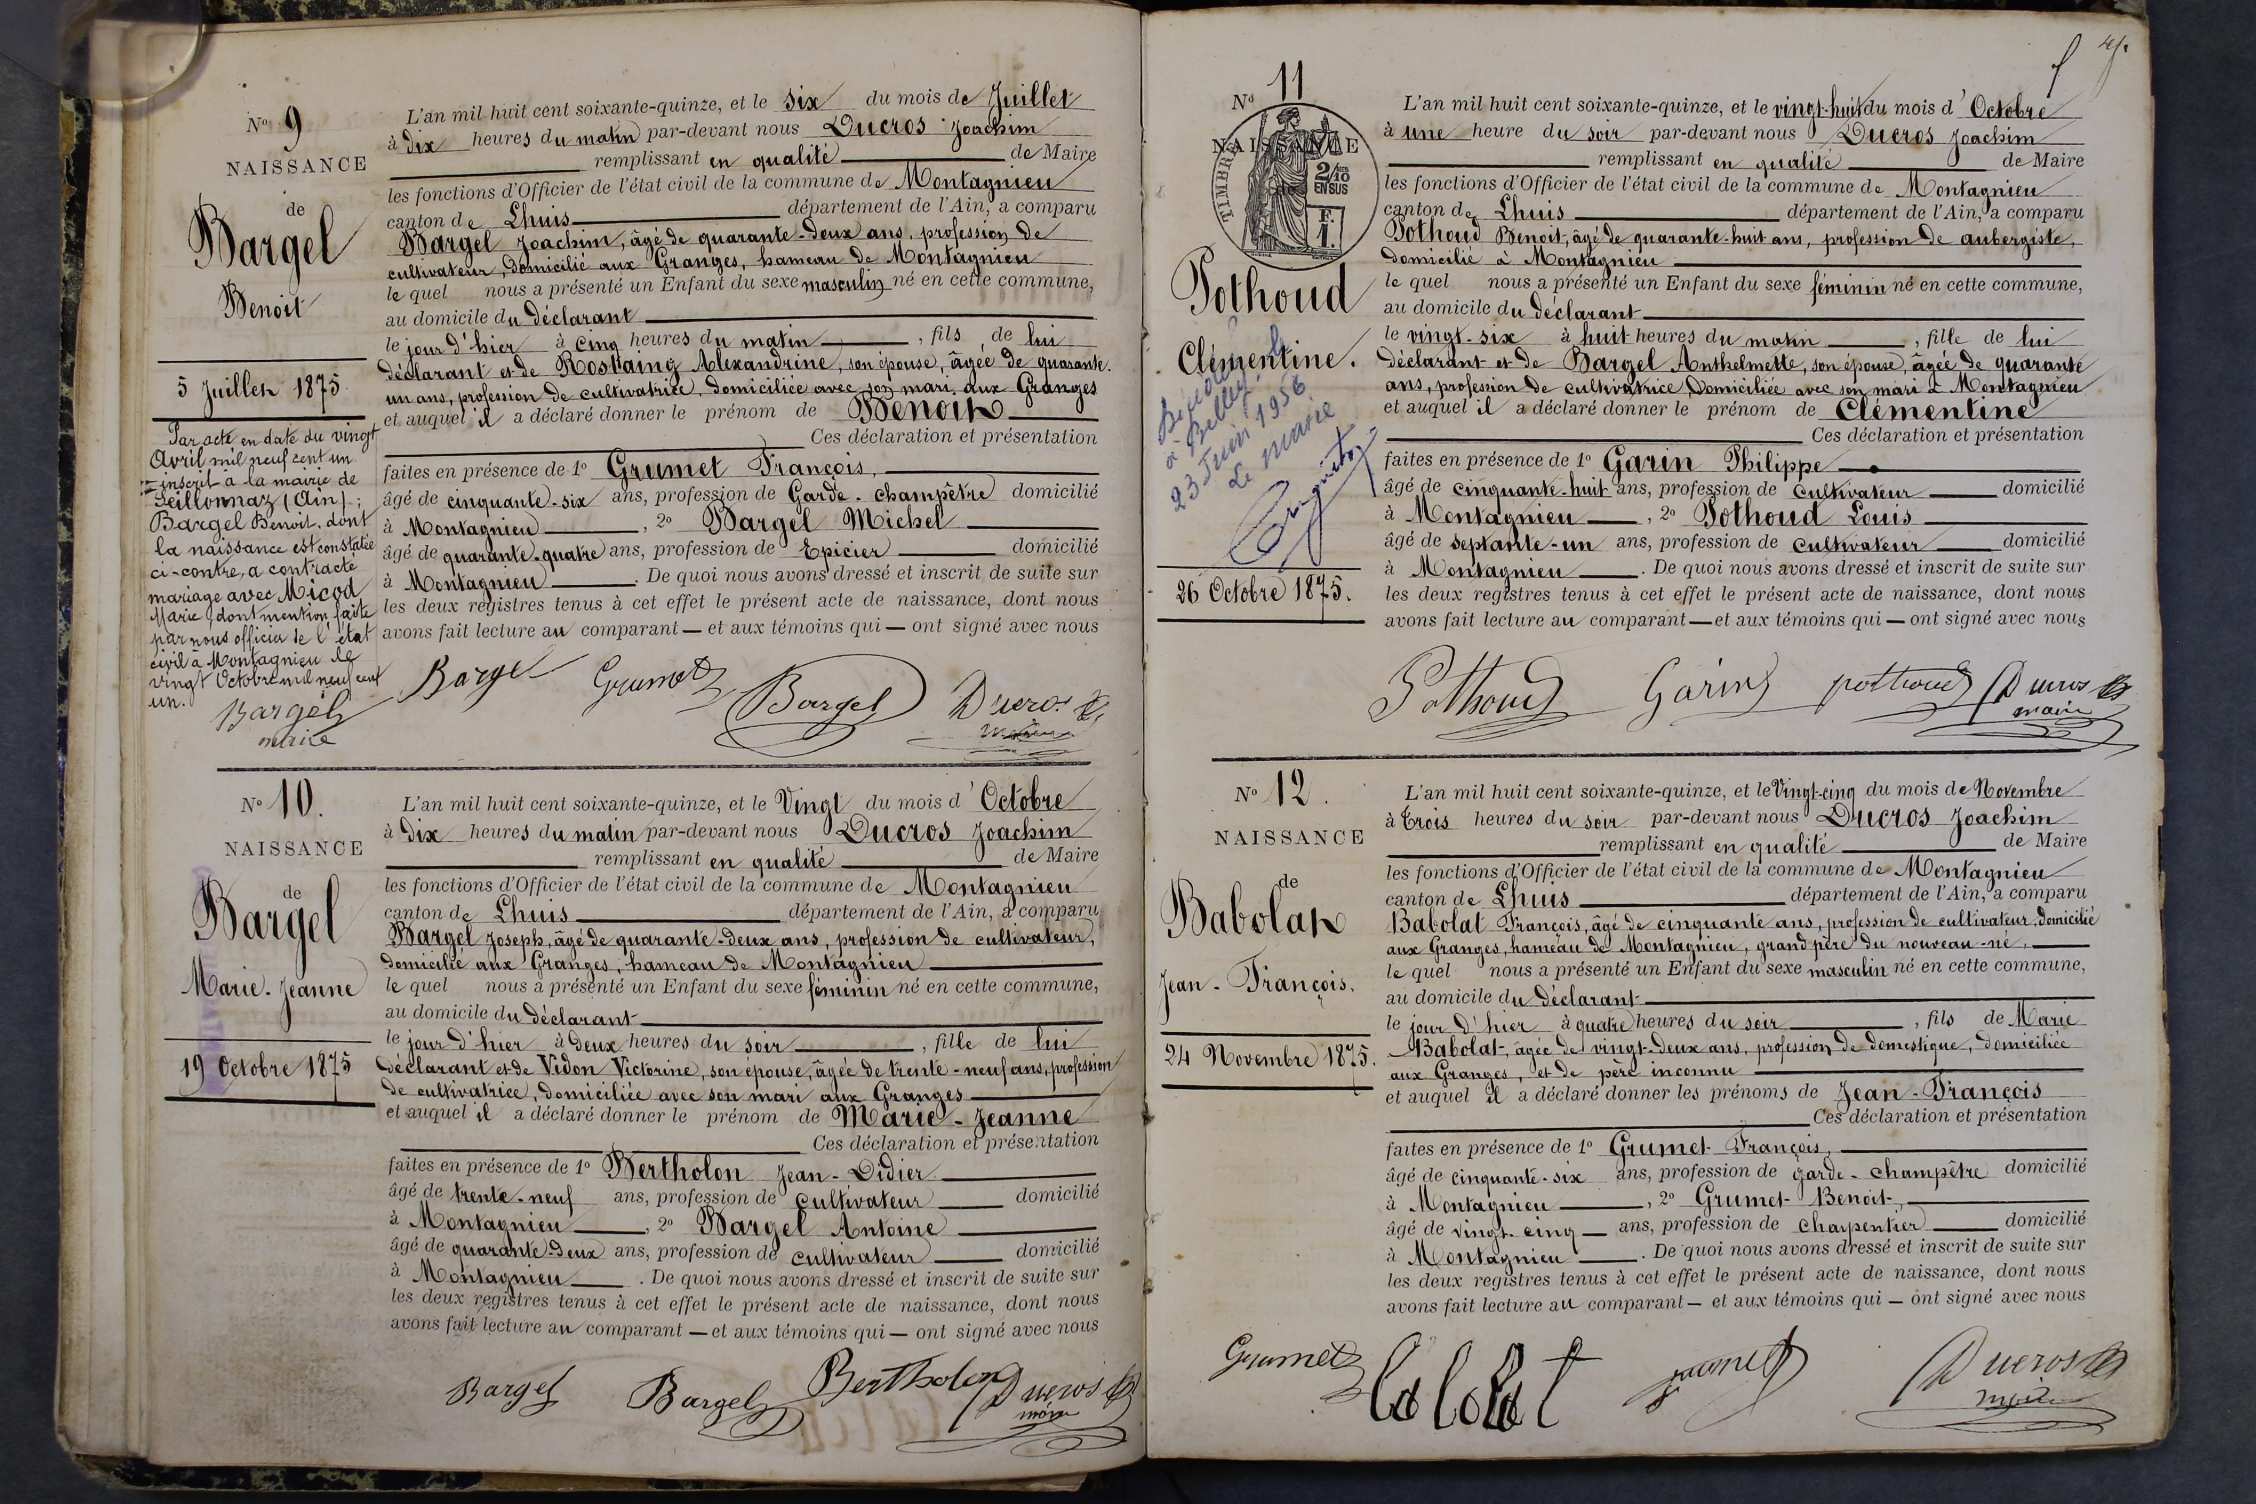 Nº 9
NAISSANCE
de
Bargel
Benoit
5 Juillet 1875.
Par acte en date du vingt
Avril mil neuf cent un
inscrit à la mairie de
Seillonnaz (Ain);
Bargel Benoit, dont
la naissance est constatée
ci-contre, a contracté
mariage avec Micod
Marie, dont mention faite
par nous officier de l'état
civil à Montagnieu le
vingt Octobre mil neuf cent
un.
Bargel
maire
L'an mil huit cent soixante-quinze, et le six du mois de Juillet
à dix heures du matin par-devant nous Ducros Joachim
remplissant en qualité de Maire
les fonctions d'Officier de l'état civil de la commune de Montagnieu
canton de Lhuis département de l'Ain, a comparu
Bargel Joachim, âgé de quarante-deux ans, profession de
cultivateur, domicilié aux Granges, hameau de Montagnieu
le quel nous a présenté un Enfant du sexe masculin né en cette commune,
au domicile du déclarant
le jour d'hier à cinq heures du matin, fils de lui
déclarant et de Rostaing Alexandrine, son épouse, âgée de quarante.
un ans, profession de cultivatrice, domiciliée avec son mari aux Granges
et auquel il a déclaré donner le prénom de Benoit
Ces déclaration et présentation
faites en présence de 1º Grumet François,
âgé de cinquante-six ans, profession de Garde-champêtre domicilié
à Montagnieu, 2º Bargel Michel
âgé de quarante-quatre ans, profession de Epicier domicilié
à Montagnieu. De quoi nous avons dressé et inscrit de suite sur
les deux registres tenus à cet effet le présent acte de naissance, dont nous
avons fait lecture au comparant — et aux témoins qui — ont signé avec nous
Bargel Grumet Bargel Ducros
maire
Nº 10.
NAISSANCE
de
Bargel
Marie-Jeanne
19 Octobre 1875
L'an mil huit cent soixante-quinze, et le Vingt du mois d'Octobre
à dix heures du matin par-devant nous Ducros Joachim
remplissant en qualité de Maire
les fonctions d'Officier de l'état civil de la commune de Montagnieu
canton de Lhuis département de l'Ain, a comparu
Bargel Joseph, âgé de quarante-deux ans, profession de cultivateur,
domicilié aux Granges, hameau de Montagnieu
le quel nous a présenté un Enfant du sexe féminin né en cette commune,
au domicile du déclarant
le jour d'hier à deux heures du soir, fille de lui
déclarant et de Vidon Victorine, son épouse, âgée de trente-neuf ans, profession
de cultivatrice, domiciliée avec son mari aux Granges
et auquel il a déclaré donner le prénom de Marie-Jeanne
Ces déclaration et présentation
faites en présence de 1º Bertholon Jean-Didier
âgé de trente-neuf ans, profession de cultivateur domicilié
à Montagnieu, 2º Bargel Antoine
âgé de quarante-deux ans, profession de cultivateur domicilié
à Montagnieu. De quoi nous avons dressé et inscrit de suite sur
les deux registres tenus à cet effet le présent acte de naissance, dont nous
avons fait lecture au comparant — et aux témoins qui — ont signé avec nous
Bargel Bargel Bertholon Ducros
maire
Nº 11
NAISSANCE
TIMBRE
2/10
EN SUS
F.
1.
de
Pothoud
Clémentine.
à Belley
23 Juin 1956
Le Maire
26 Octobre 1875.
L'an mil huit cent soixante-quinze, et le vingt-huit du mois d'Octobre
à une heure du soir par-devant nous Ducros Joachim
remplissant en qualité de Maire
les fonctions d'Officier de l'état civil de la commune de Montagnieu
canton de Lhuis département de l'Ain, a comparu
Pothoud Benoit, âgé de quarante-huit ans, profession de aubergiste,
domicilié à Montagnieu
le quel nous a présenté un Enfant du sexe féminin né en cette commune,
au domicile du déclarant
le vingt-six à huit heures du matin, fille de lui
déclarant et de Bargel Anthelmette, son épouse, âgée de quarante
ans, profession de cultivatrice, domiciliée avec son mari à Montagnieu
et auquel il a déclaré donner le prénom de Clémentine
Ces déclaration et présentation
faites en présence de 1º Garin Philippe
âgé de cinquante-huit ans, profession de cultivateur domicilié
à Montagnieu, 2º Pothoud Louis
âgé de septante-un ans, profession de cultivateur domicilié
à Montagnieu. De quoi nous avons dressé et inscrit de suite sur
les deux registres tenus à cet effet le présent acte de naissance, dont nous
avons fait lecture au comparant — et aux témoins qui — ont signé avec nous
Pothoud Garin pothoud Ducros
maire
Nº 12.
NAISSANCE
de
Babolat
Jean-François.
24 Novembre 1875.
L'an mil huit cent soixante-quinze, et le Vingt-cinq du mois de Novembre
à trois heures du soir par-devant nous Ducros Joachim
remplissant en qualité de Maire
les fonctions d'Officier de l'état civil de la commune de Montagnieu
canton de Lhuis département de l'Ain, a comparu
Babolat François, âgé de cinquante ans, profession de cultivateur, domicilié
aux Granges, hameau de Montagnieu, grand père du nouveau-né,
le quel nous a présenté un Enfant du sexe masculin né en cette commune,
au domicile du déclarant
le jour d'hier à quatre heures du soir, fils de Marie
Babolat, âgée de vingt-deux ans, profession de domestique, domiciliée
aux Granges, et de père inconnu
et auquel il a déclaré donner les prénoms de Jean-François
Ces déclaration et présentation
faites en présence de 1º Grumet François,
âgé de cinquante-six ans, profession de garde-champêtre domicilié
à Montagnieu, 2º Grumet Benoit,
âgé de vingt-cinq ans, profession de charpentier domicilié
à Montagnieu. De quoi nous avons dressé et inscrit de suite sur
les deux registres tenus à cet effet le présent acte de naissance, dont nous
avons fait lecture au comparant — et aux témoins qui — ont signé avec nous
Grumet babolat grumet Ducros
maire